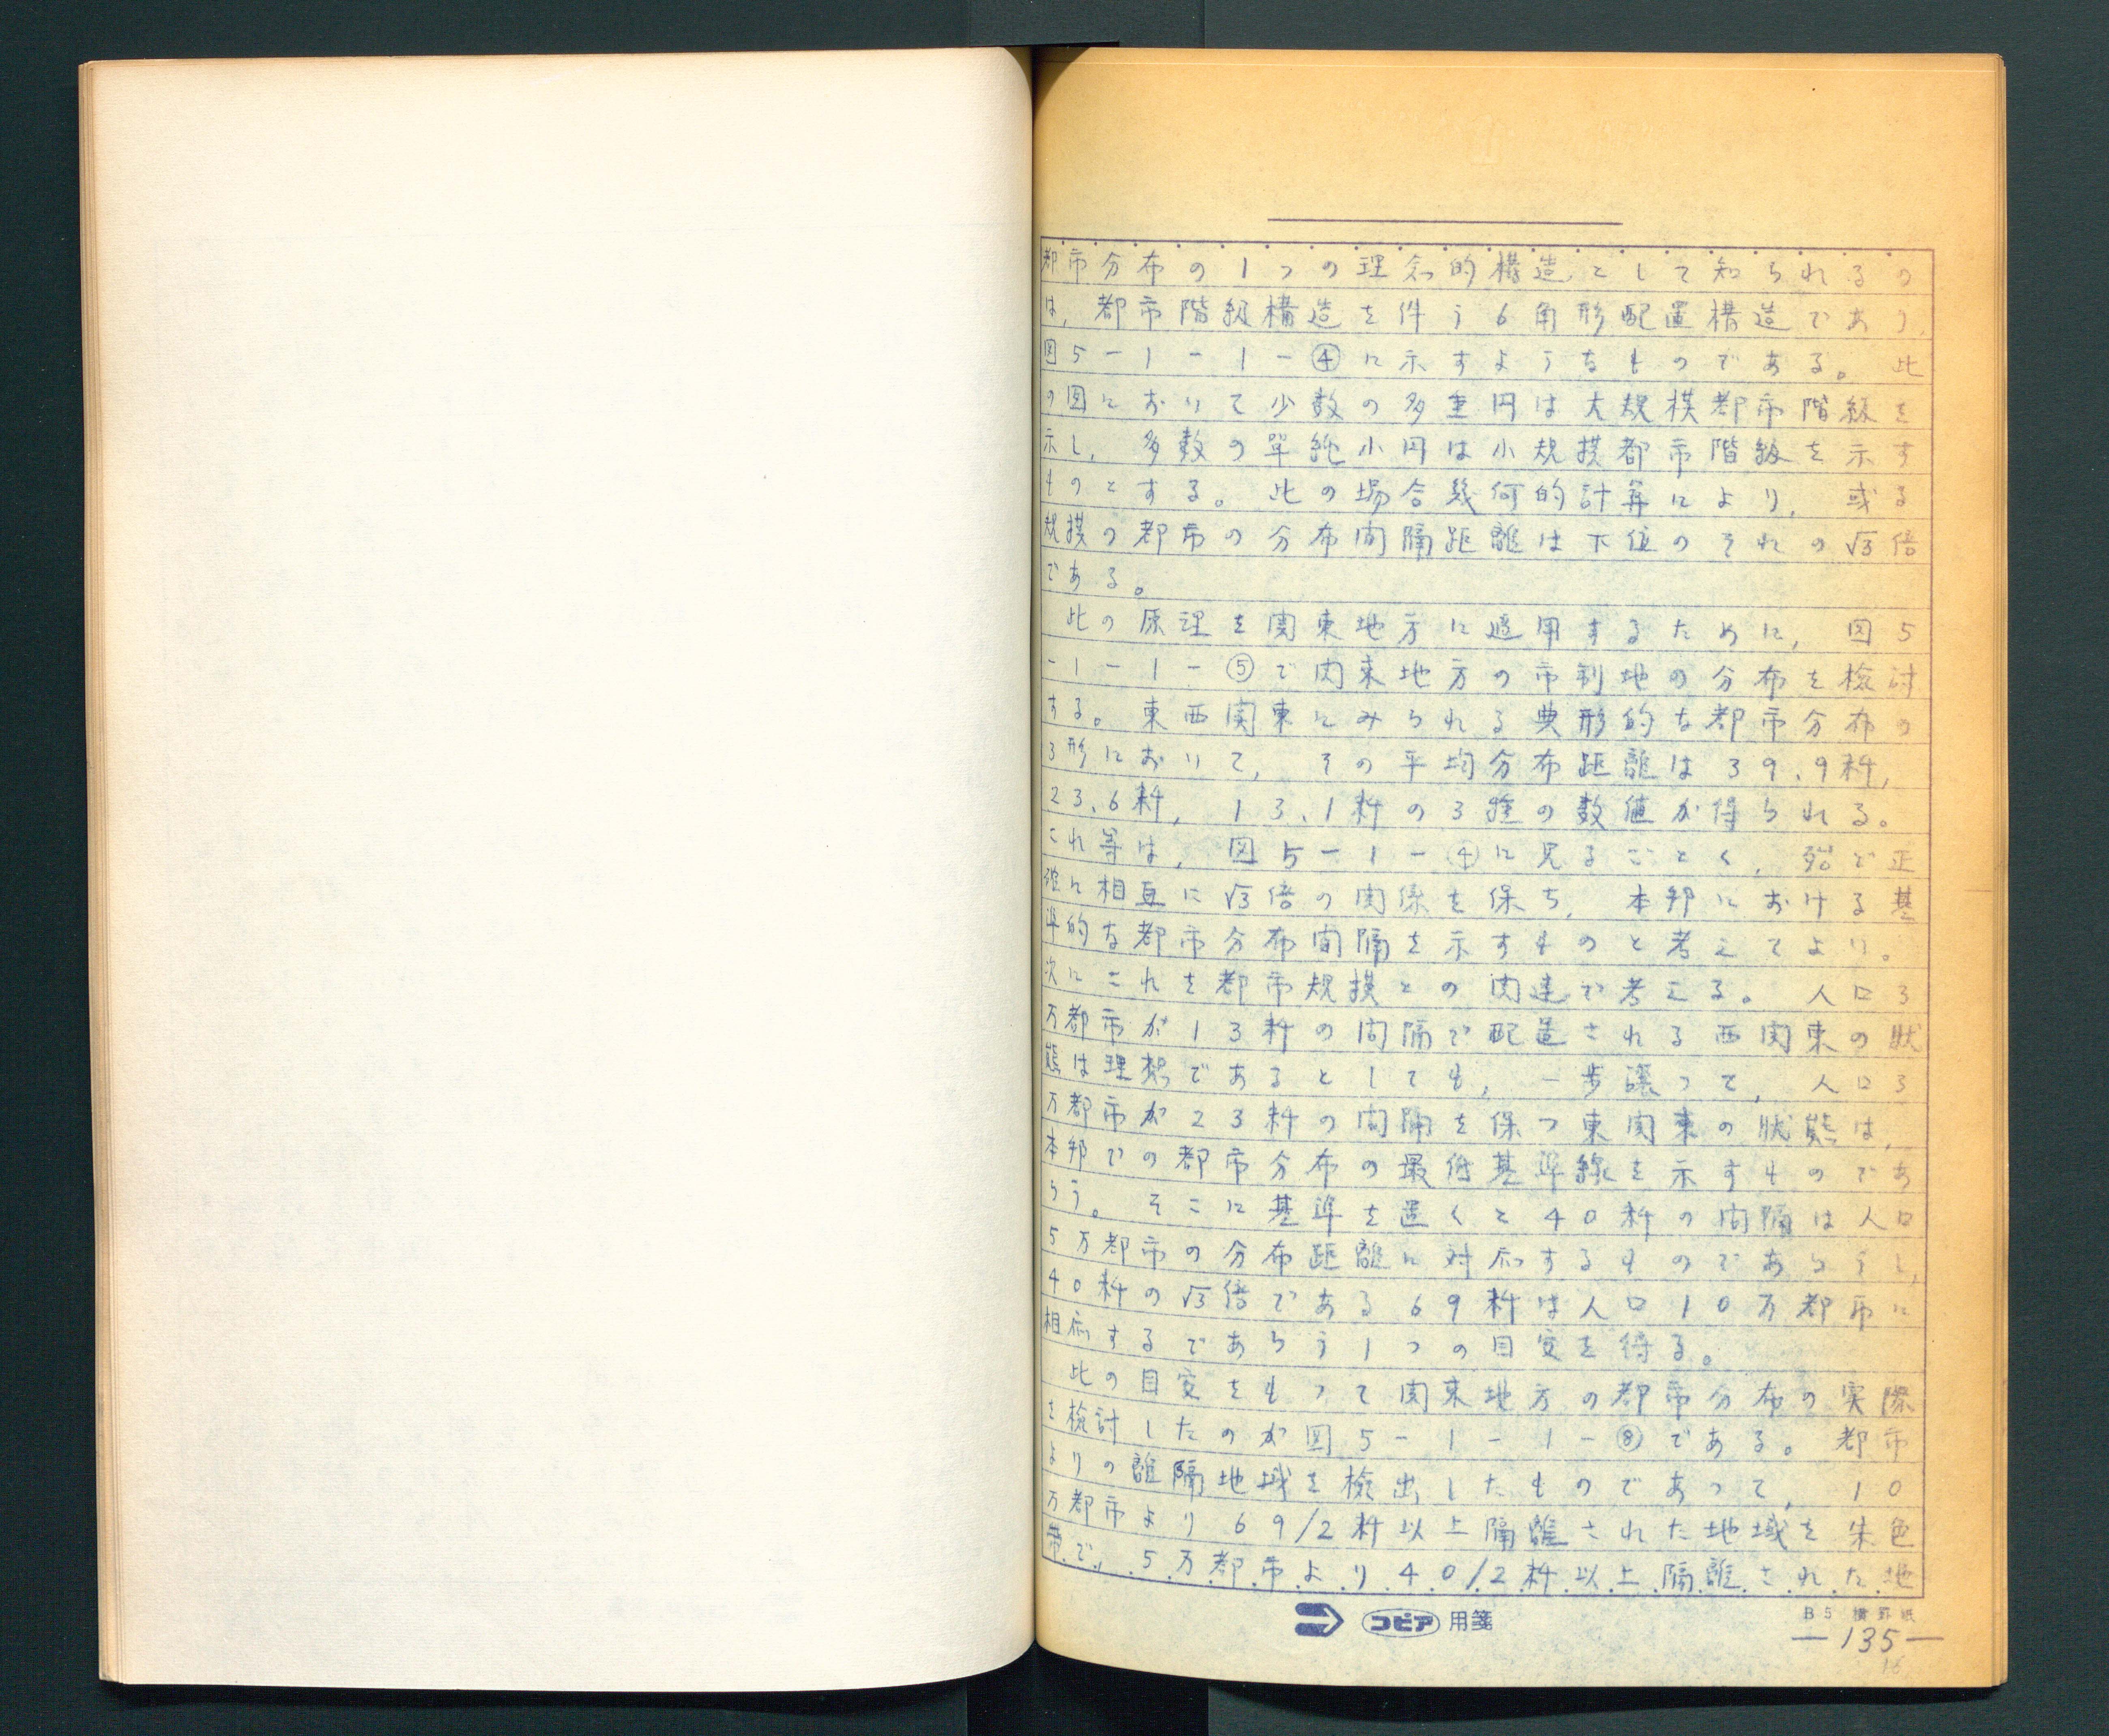 都市分布の1つの理念的構造として知られるの
は,都市階級構造を伴う6角形配置構造であり,
図5-1-1-④に示すようなものである。此
の図において少数の多重円は大規模都市階級を
示し,多数の単純小円は小規模都市階級を示す
ものとする。此の場合幾何的計算により,或る
規模の都市の分布間隔距離は下位のそれの√3倍
である。
此の原理を関東地方に適用するために,図5
-1-1-⑤で関東地方の市制地の分布を検討
する。東西関東にみられる典形的な都市分布の
3形において,その平均分布距離は39.9粁,
23.6粁,13.1粁の3種の数値が得られる。
これ等は,図5-1-④に見るごとく,殆ど正
確に相互に√3倍の関係を保ち,本邦における基
準的な都市分布間隔を示すものと考えてよい。
次にこれを都市規模との関連で考える。人口3
万都市が13粁の間隔で配置される西関東の状
態は理想であるとしても,一歩譲って,人口3
万都市が23粁の間隔を保つ東関東の状態は,
本邦での都市分布の最低基準線を示すものであ
らう。そこに基準を置くと40粁の間隔は人口
5万都市の分布距離に対応するものであらうし,
40粁の√3倍である69粁は人口10万都市に
相応するであらう1つの目安を得る。
此の目安をもって関東地方の都市分布の実際
を検討したのが図5-1-1-⑧である。都市
よりの離隔地域を検出したものであって,10
万都市より69/2粁以上隔離された地域を朱色
帯で,5万都市より40/2粁以上隔離された地
コピア用箋
B5 横罫紙
—135—
16